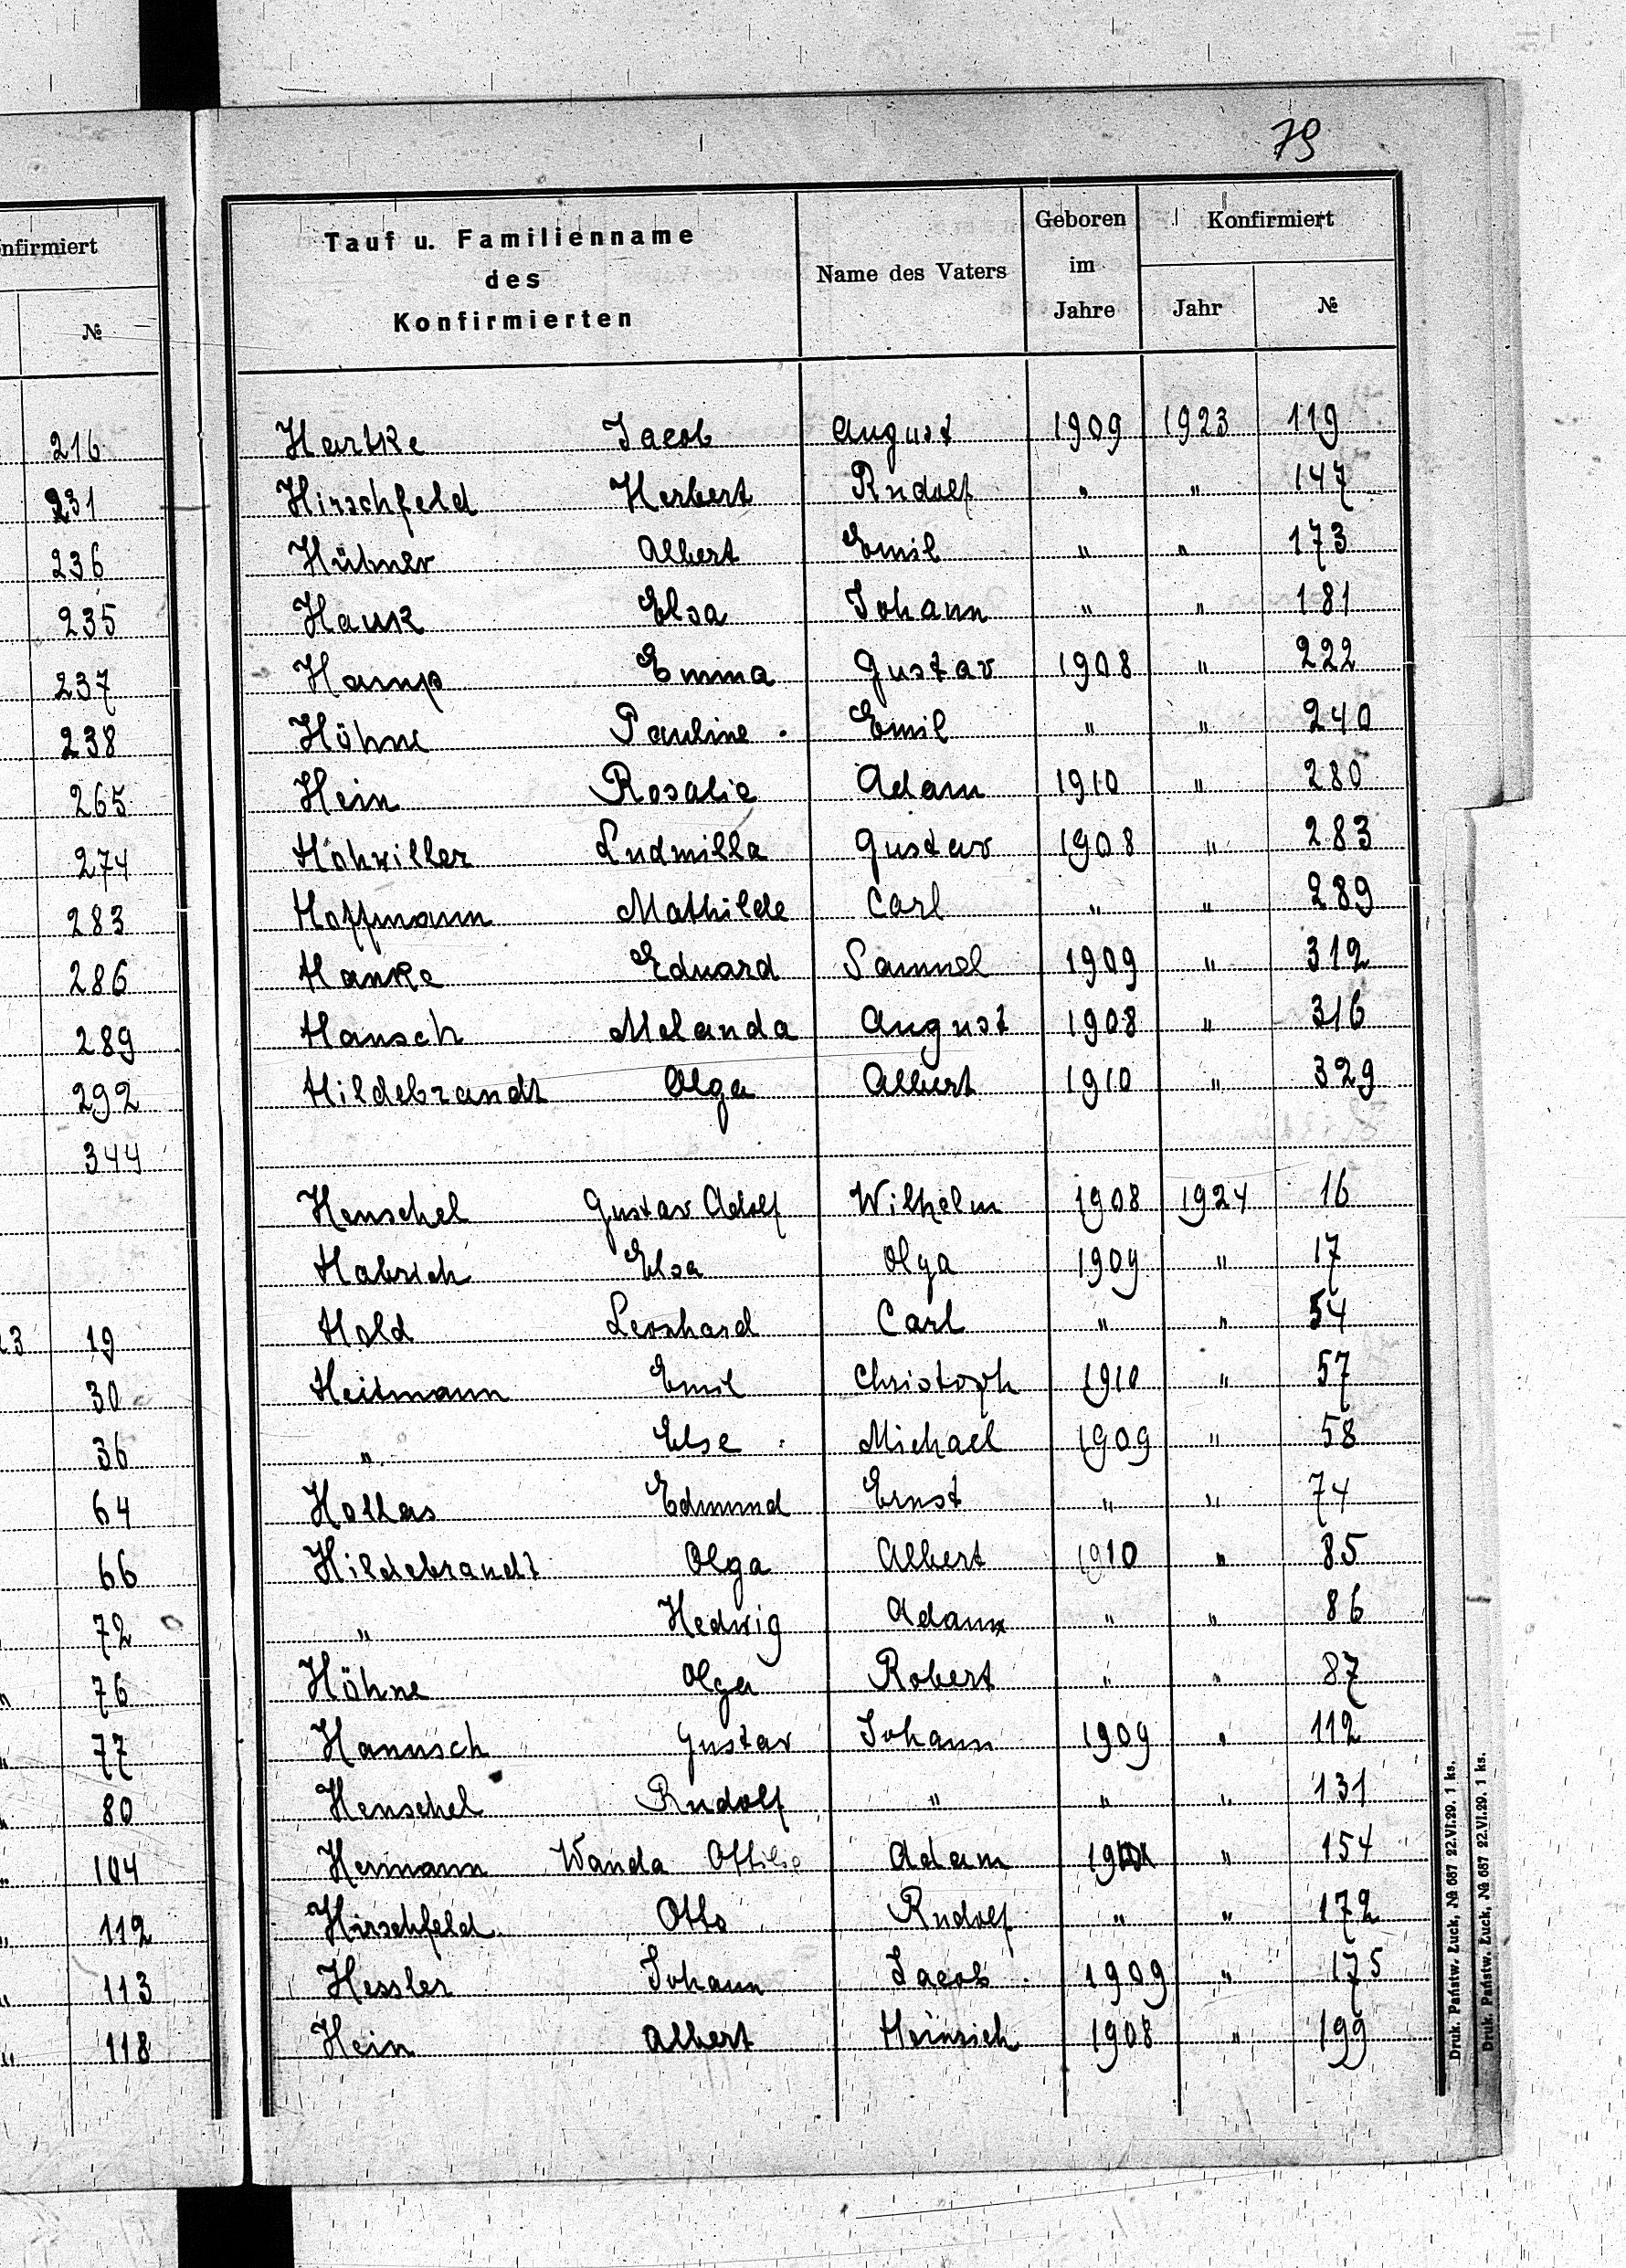 79
onfirmiert
№
216
231
236
235
237
238
265
274
283
286
289
292
344
23 19
30
36
64
66
72
" 76
" 77
" 80
" 104
" 112
" 113
" 118
Tauf u. Familienname
des
Konfirmierten
Name des Vaters
Geboren
im
Jahre
Konfirmiert
Jahr
№
Hartke Jacob August 1909 1923 119
Hirschfeld Herbert Rudolf " " 147
Hübner Albert Emil " " 173
Hauk Elsa Johann " " 181
Hamp Emma Gustav 1908 " 222
Höhne Pauline Emil " " 240
Hein Rosalie Adam 1910 " 280
Hohwiller Ludmilla Gustav 1908 " 283
Hoffmann Mathilde Carl " " 289
Hanke Eduard Samuel 1909 " 312
Hansch Melanda August 1908 " 316
Hildebrandt Olga Albert 1910 " 329
Henschel Gustav Adolf Wilhelm 1908 1924 16
Habrich Elsa Olga 1909 " 17
Hold Leonhard Carl " " 54
Heitmann Emil Christoph 1910 " 57
" Else Michael 1909 " 58
Hollas Edmund Ernst " " 74
Hildebrandt Olga Albert 1910 " 85
" Hedwig Adam " " 86
Höhne Olga Robert " " 87
Hannsch Gustav Johann 1909 " 112
Henschel Rudolf " " " 131
Hermann Wanda Ottilie Adam " 154
Hirschfeld Otto Rudolf " " 172
Hessler Johann Jacob 1909 " 175
Hein Albert Heinrich 1908 " 199
Druk. Państw. Łuck, № 687 22.VI.29. 1 ks.
Druk. Państw. Łuck, № 687 22.VI.29. 1 ks.